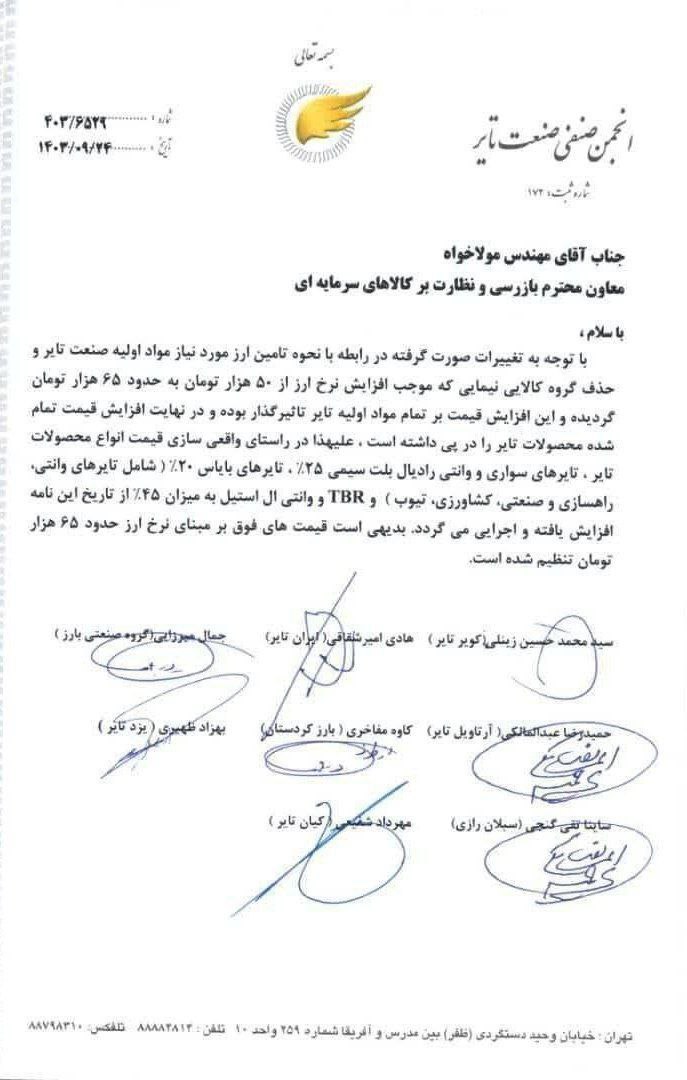 بسمه تعالی
انجمن صنفی صنعت تایر
شماره ثبت: ۱۷۳
شماره : ۴۰۳/۶۵۲۹
تاریخ : ۱۴۰۳/۰۹/۲۴
جناب آقای مهندس مولاخواه
معاون محترم بازرسی و نظارت بر کالاهای سرمایه ای
با سلام ،
با توجه به تغییرات صورت گرفته در رابطه با نحوه تامین ارز مورد نیاز مواد اولیه صنعت تایر و
حذف گروه کالایی نیمایی که موجب افزایش نرخ ارز از ۵۰ هزار تومان به حدود ۶۵ هزار تومان
گردیده و این افزایش قیمت بر تمام مواد اولیه تایر تاثیرگذار بوده و در نهایت افزایش قیمت تمام
شده محصولات تایر را در پی داشته است ، علیهذا در راستای واقعی سازی قیمت انواع محصولات
تایر ، تایرهای سواری و وانتی رادیال بلت سیمی ۲۵٪ ، تایرهای بایاس ۲۰٪ ( شامل تایرهای وانتی،
راهسازی و صنعتی، کشاورزی، تیوب ) و TBR و وانتی ال استیل به میزان ۴۵٪ از تاریخ این نامه
افزایش یافته و اجرایی می گردد. بدیهی است قیمت های فوق بر مبنای نرخ ارز حدود ۶۵ هزار
تومان تنظیم شده است.
سید محمد حسین زینلی(کویر تایر ) هادی امیرشقاقی( ایران تایر) جمال میرزایی(گروه صنعتی بارز )
حمیدرضا عبدالمالکی( آرتاویل تایر) کاوه مفاخری ( بارز کردستان) بهزاد ظهیری ( یزد تایر )
ساینا تقی گنجی (سبلان رازی) مهرداد شفیعی ( کیان تایر )
تهران : خیابان وحید دستگردی (ظفر) بین مدرس و آفریقا شماره ۲۵۹ واحد ۱۰ تلفن : ۸۸۸۸۴۸۱۴ تلفکس: ۸۸۷۹۸۳۱۰